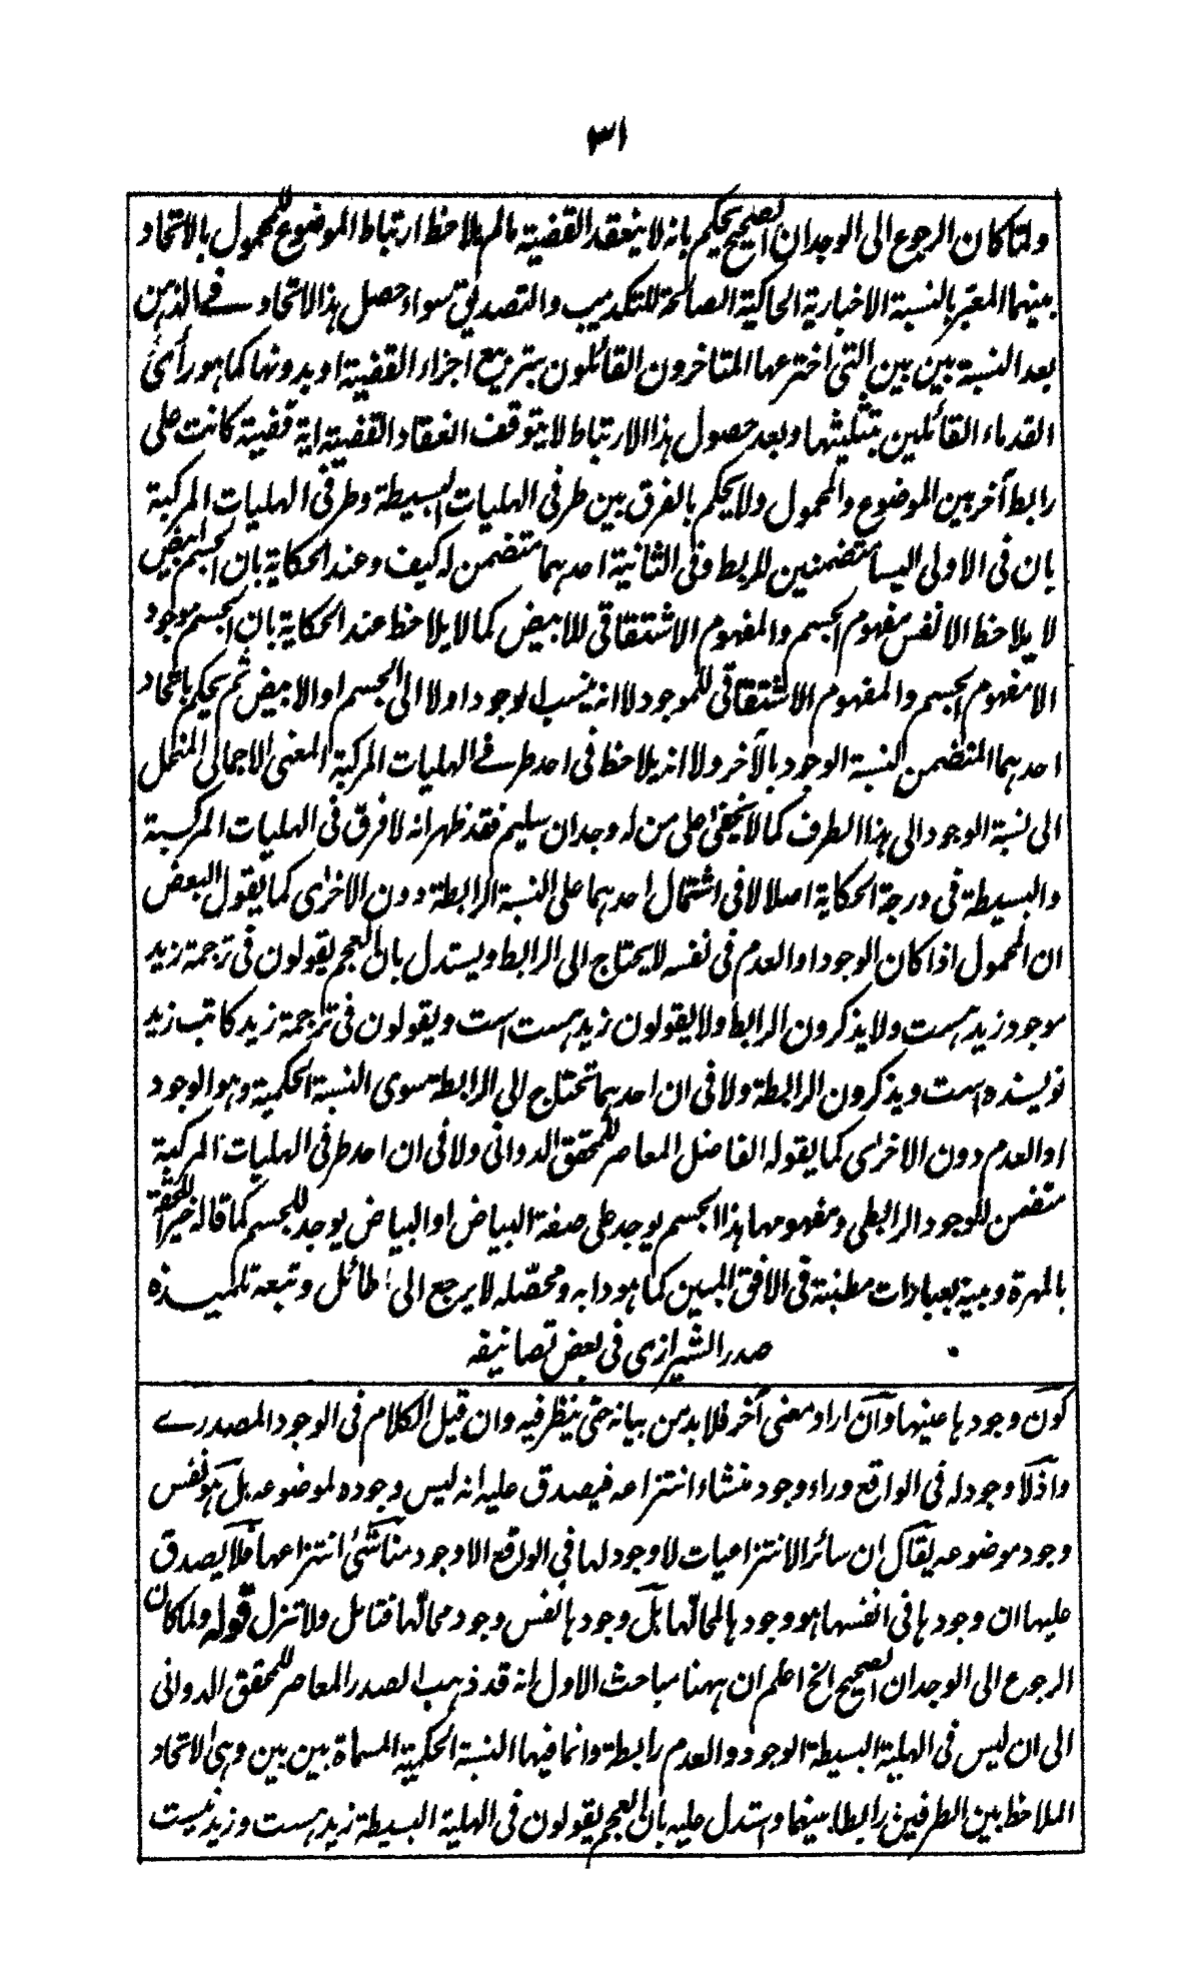 ٣١
ولما كان الرجوع الى الوجدان الصحيح يحكم بانه لا ينعقد القضية مالم يلاحظ ارتباط الموضوع للمحمول بالاتحاد
بينهما المعبر بالنسبة الاخبارية الحاكية الصالحة للتكذيب والتصديق سواء حصل هذا الاتحاد في الذهن
بعد النسبة بين بين التى اخترعها المتاخرون القائلون بتربيع اجزاء القضية او بدونها كما هو رأى
القدماء القائلين بتثليثها وبعد حصول هذا الارتباط لا يتوقف انعقاد القضية اية قضية كانت على
رابط آخر بين الموضوع والمحمول ولا يحكم بالفرق بين طرفى الهليات البسيطة وطرفى الهليات المركبة
بان فى الاولى ليسا متضمنين للربط وفى الثانية احدهما متضمن له كيف وعند الحكاية بان الجسم ابيض
لا يلاحظ الا نفس مفهوم الجسم والمفهوم الاشتقاقى للابيض كما لا يلاحظ عند الحكاية بان الجسم موجود
الا مفهوم الجسم والمفهوم الاشتقاقى للموجود لا انه ينسب الوجود اولا الى الجسم او الابيض ثم يحكم باتحاد
احدهما المتضمن لنسبة الوجود بالآخر ولا انه يلاحظ فى احد طرفے الهليات المركبة المعنى الاجمالى المنحل
الى نسبة الوجود الى هذا الطرف كما لا يخفى على من له وجدان سليم فقد ظهر انه لا فرق فى الهليات المركبة
والبسيطة فى درجة الحكاية اصلا لا فى اشتمال احدهما على النسبة الرابطة دون الاخرى كما يقول البعض
ان المحمول اذا كان الوجود او العدم فى نفسه لا يحتاج الى الرابط ويستدل بان العجم يقولون فى ترجمة زيد
موجود زيد هست ولا يذكرون الرابط ولا يقولون زيد هست است ويقولون فى ترجمة زيد كاتب زيد
نويسنده است ويذكرون الرابطة ولا فى ان احدهما تحتاج الى الرابطة سوى النسبة الحكمية وهو الوجود
او العدم دون الاخرى كما يقوله الفاضل المعاصر للمحقق الدوانى ولا فى ان احد طرفى الهليات المركبة
متضمن للوجود الرابطى ومفهومها هذا الجسم يوجد على صفة البياض او البياض يوجد للجسم كما قاله خير اللحقة
بالمهرة وبينه بعبارات مطنبة فى الافق المبين كما هو دابه ومحصله لا يرجع الى طائل وتبعه تلميذه
صدر الشيرازى فى بعض تصانيفه
كون وجودها عينها وان اراد معنى آخر فلا بد من بيانه حتى ينظر فيه وان قيل الكلام فى الوجود المصدرے
واذ لا وجود له فى الواقع وراء وجود منشاء انتزاعه فيصدق عليه انه ليس وجوده لموضوعه بل هو نفس
وجود موضوعه يقال ان سائر الانتزاعيات لا وجود لها فى الواقع الا وجود مناشئ انتزاعها فلا يصدق
عليها ان وجودها فى انفسها هو وجودها لمحالها بل وجودها نفس وجود محالها فتامل ولا تنزل قوله ولما كان
الرجوع الى الوجدان الصحيح الخ اعلم ان ههنا مباحث الاول انه قد ذهب الصدر المعاصر للمحقق الدوانى
الى ان ليس فى الهلية البسيطة الوجود والعدم رابطة وانما فيها النسبة الحكمية المسماة بين بين وهى الاتحاد
الملاحظ بين الطرفين رابطا بينهما واستدل عليه بان العجم يقولون فى الهلية البسيطة زيد هست وزيد نيست